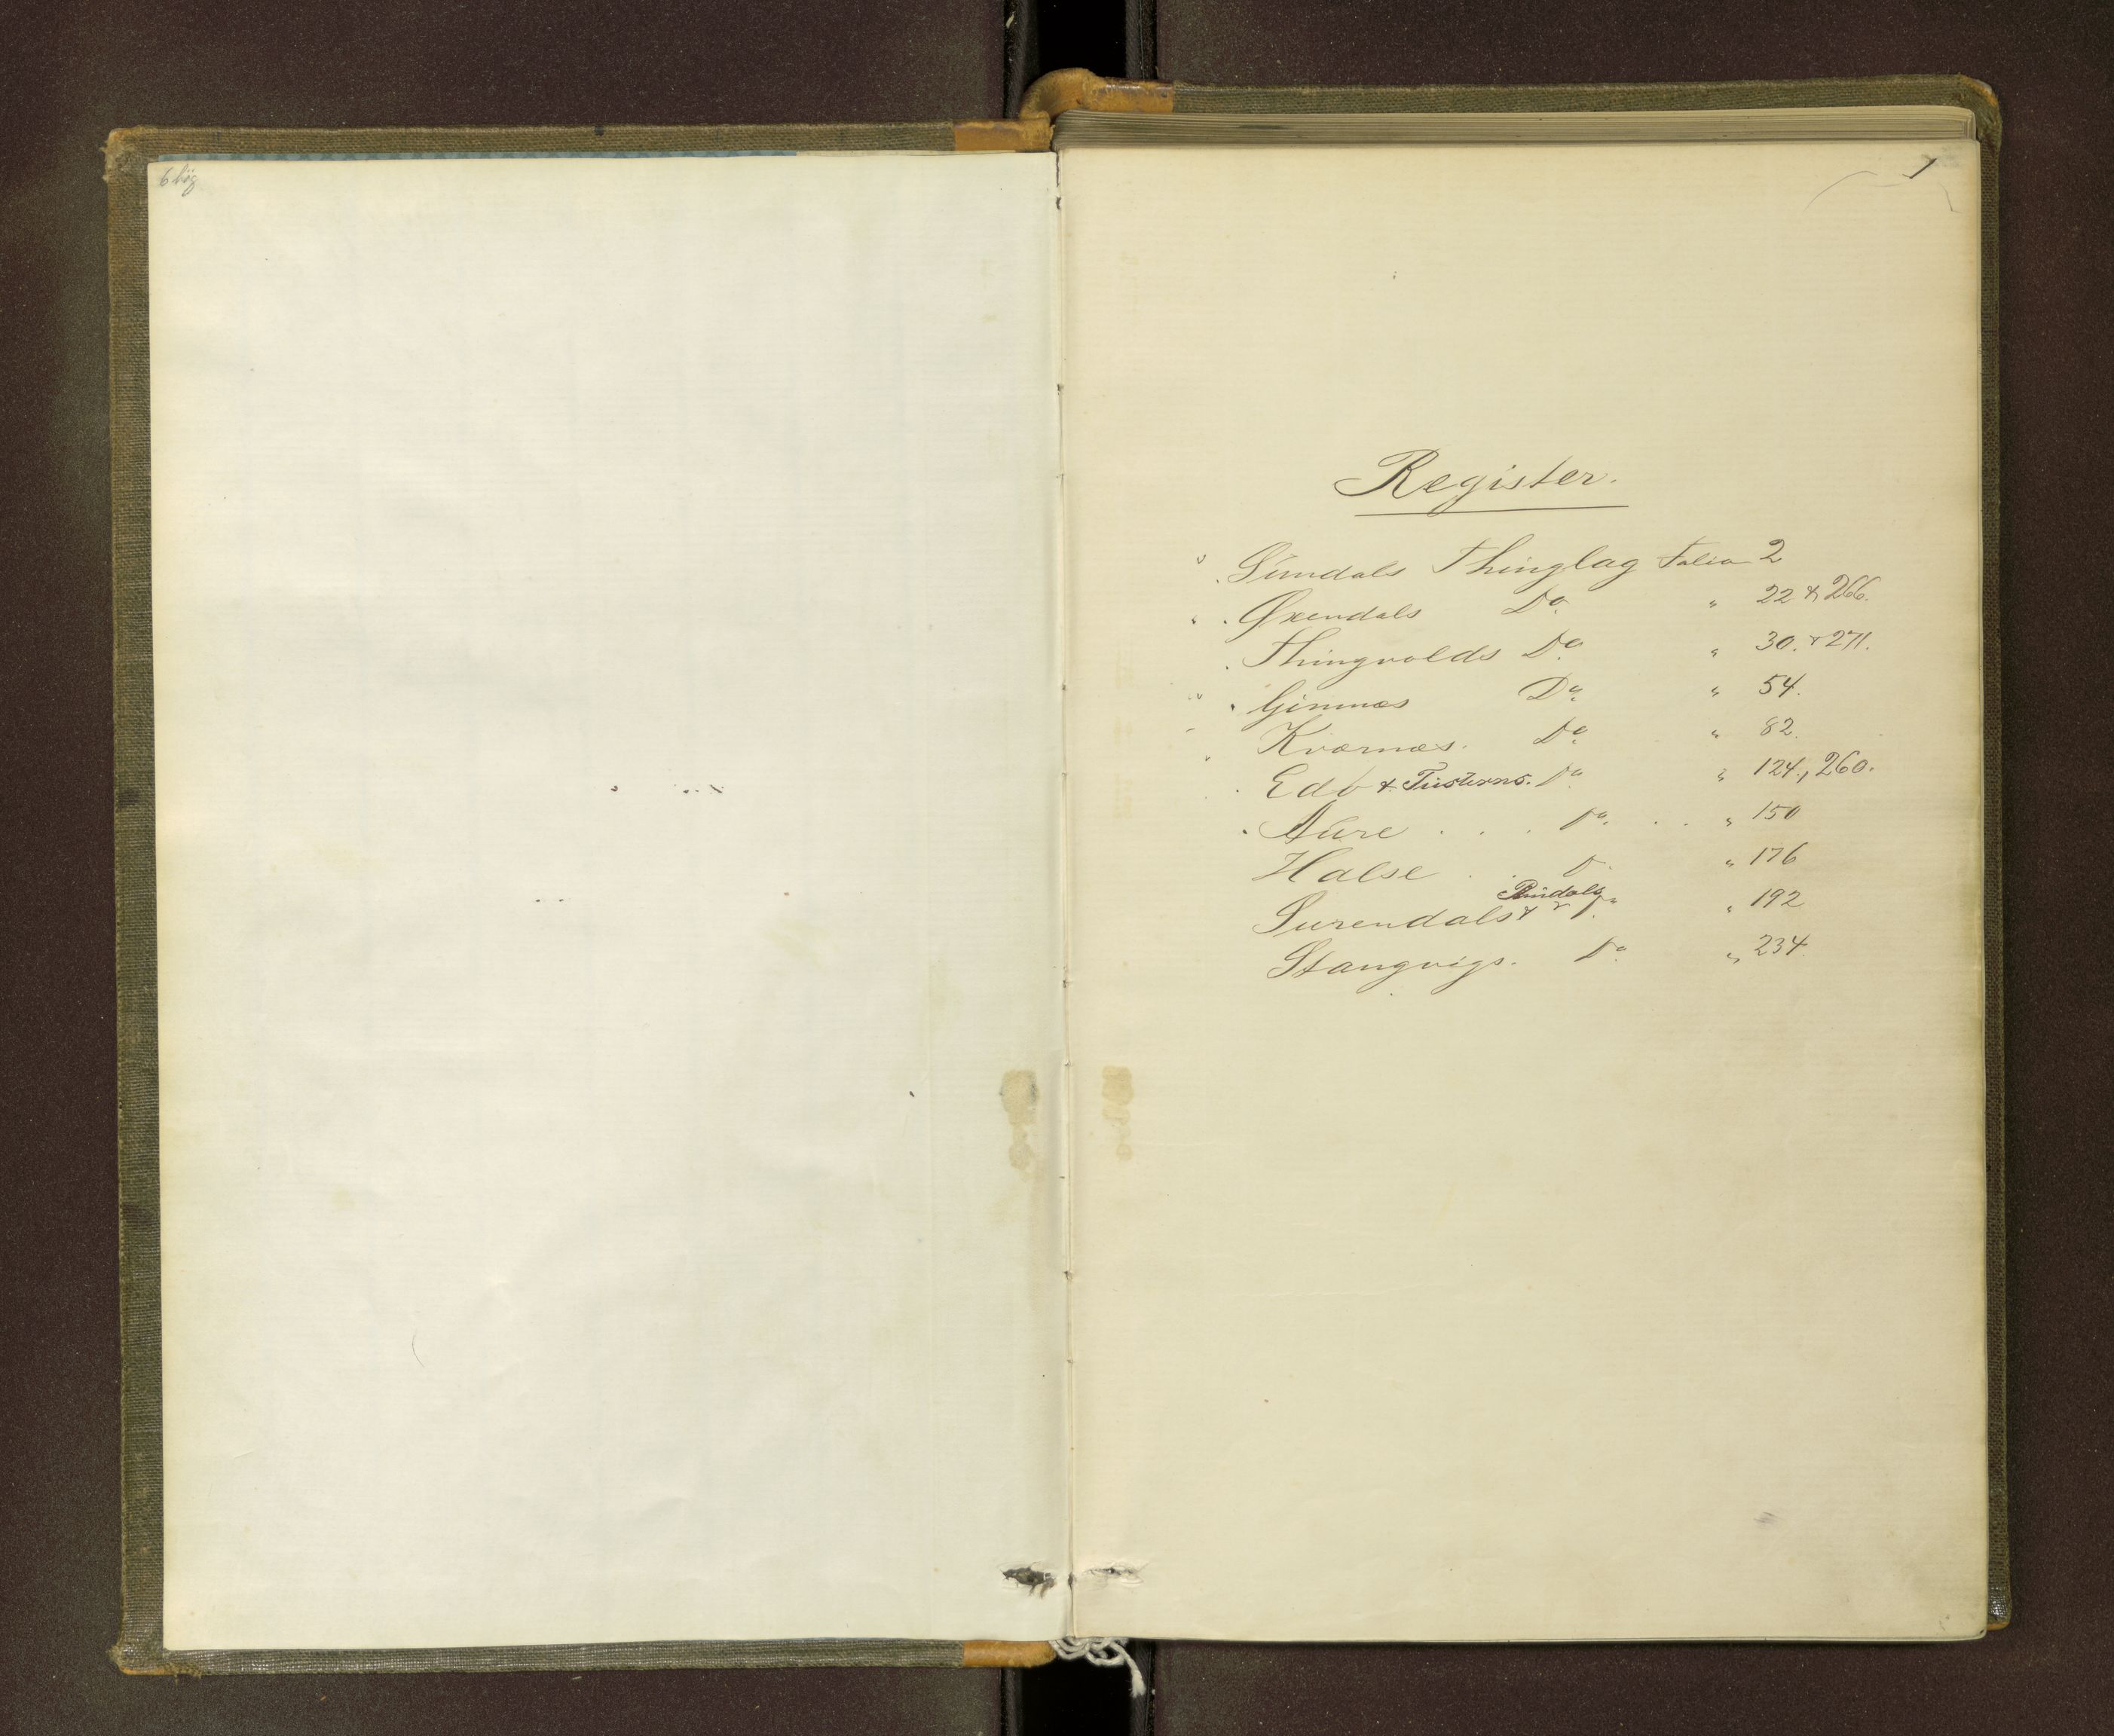 1
Register.
Sundals Thinglag Folio 2
Øxendals Do. " 22 & 266.
Thingvolds Do. " 30. & 271.
Gimnæs Do. " 54.
Kværnæs. Do. " 82.
Edø & Tusterns. Do. " 124, 260.
Aure . . . Do. . . " 150
Halse . . D " 176
Rindals
Surendals & Do. " 192
Stangvigs. Do. " 234.